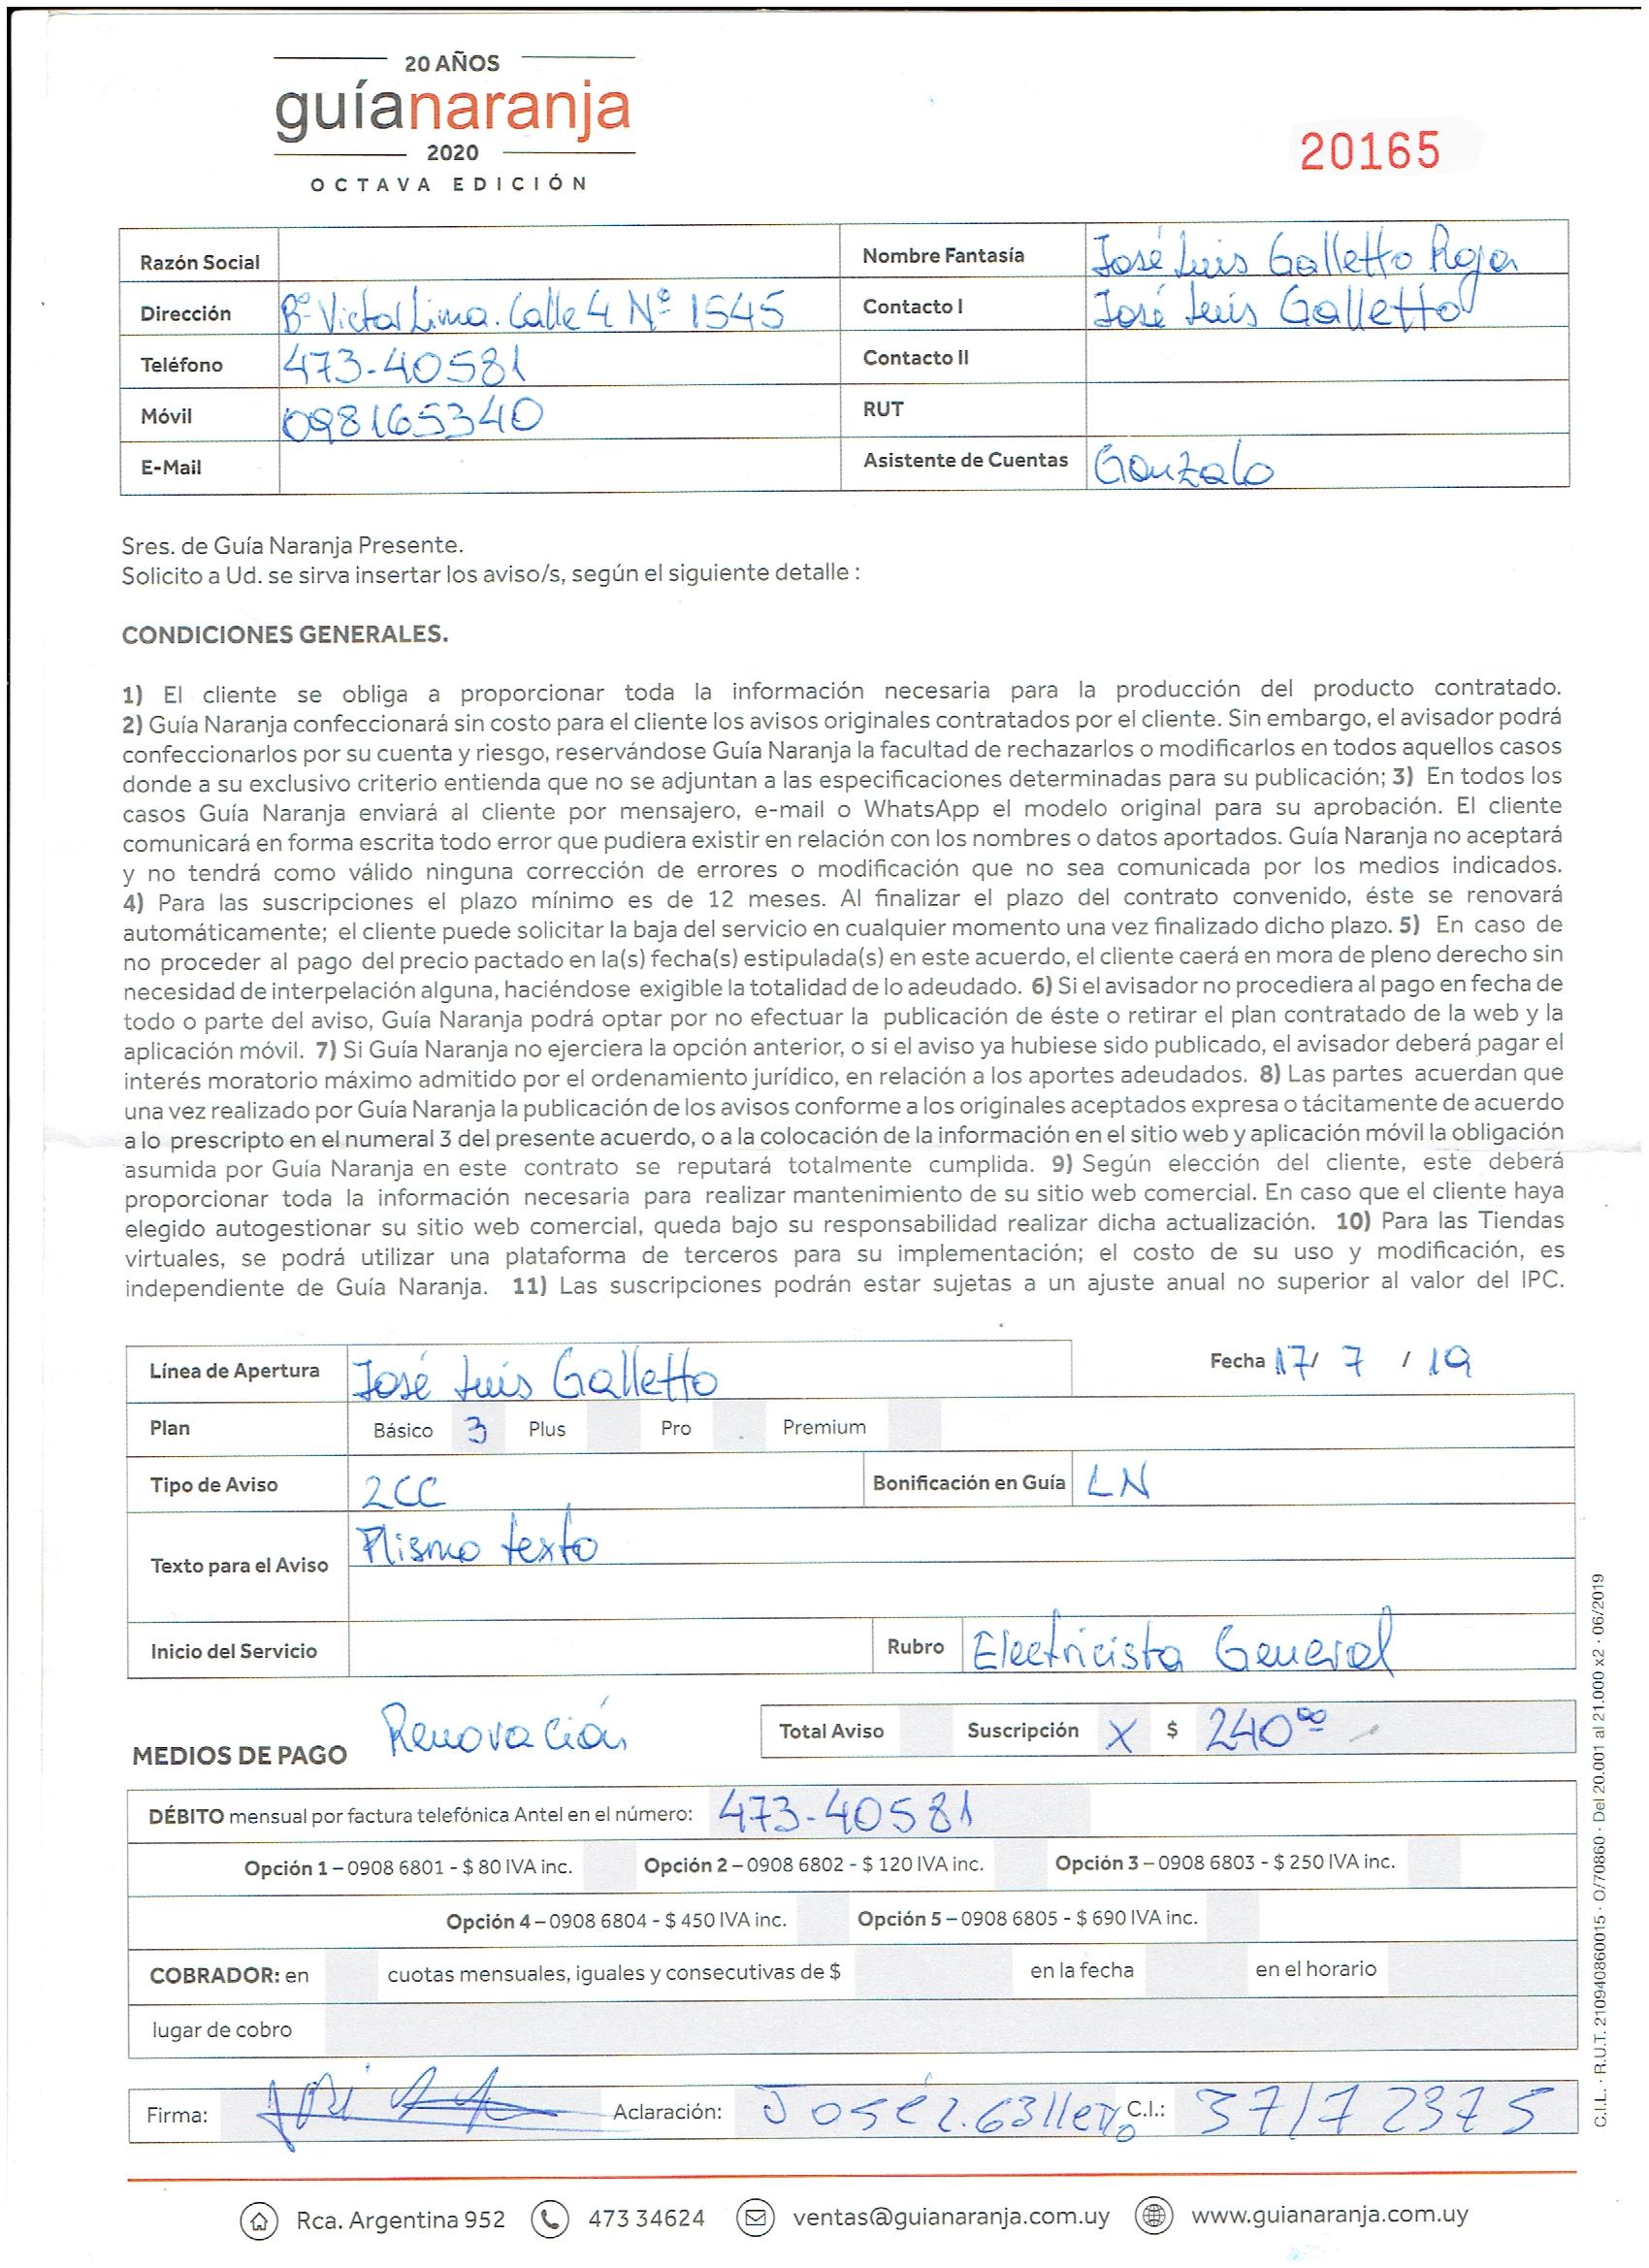 20 AÑOS
guíanaranja
2020
OCTAVA EDICIÓN
20165
Razón Social
Nombre Fantasía José Luis Galletto Roja
Dirección Bº Victor Lima. Calle 4 Nº 1545
Contacto I José Luis Galletto
Teléfono 473-40581
Contacto II
Móvil 098165340
RUT
E-Mail
Asistente de Cuentas Gonzalo
Sres. de Guía Naranja Presente.
Solicito a Ud. se sirva insertar los aviso/s, según el siguiente detalle :
CONDICIONES GENERALES.
1) El cliente se obliga a proporcionar toda la información necesaria para la producción del producto contratado.
2) Guía Naranja confeccionará sin costo para el cliente los avisos originales contratados por el cliente. Sin embargo, el avisador podrá
confeccionarlos por su cuenta y riesgo, reservándose Guía Naranja la facultad de rechazarlos o modificarlos en todos aquellos casos
donde a su exclusivo criterio entienda que no se adjuntan a las especificaciones determinadas para su publicación; 3) En todos los
casos Guía Naranja enviará al cliente por mensajero, e-mail o WhatsApp el modelo original para su aprobación. El cliente
comunicará en forma escrita todo error que pudiera existir en relación con los nombres o datos aportados. Guía Naranja no aceptará
y no tendrá como válido ninguna corrección de errores o modificación que no sea comunicada por los medios indicados.
4) Para las suscripciones el plazo mínimo es de 12 meses. Al finalizar el plazo del contrato convenido, éste se renovará
automáticamente; el cliente puede solicitar la baja del servicio en cualquier momento una vez finalizado dicho plazo. 5) En caso de
no proceder al pago del precio pactado en la(s) fecha(s) estipulada(s) en este acuerdo, el cliente caerá en mora de pleno derecho sin
necesidad de interpelación alguna, haciéndose exigible la totalidad de lo adeudado. 6) Si el avisador no procediera al pago en fecha de
todo o parte del aviso, Guía Naranja podrá optar por no efectuar la publicación de éste o retirar el plan contratado de la web y la
aplicación móvil. 7) Si Guía Naranja no ejerciera la opción anterior, o si el aviso ya hubiese sido publicado, el avisador deberá pagar el
interés moratorio máximo admitido por el ordenamiento jurídico, en relación a los aportes adeudados. 8) Las partes acuerdan que
una vez realizado por Guía Naranja la publicación de los avisos conforme a los originales aceptados expresa o tácitamente de acuerdo
a lo prescripto en el numeral 3 del presente acuerdo, o a la colocación de la información en el sitio web y aplicación móvil la obligación
asumida por Guía Naranja en este contrato se reputará totalmente cumplida. 9) Según elección del cliente, este deberá
proporcionar toda la información necesaria para realizar mantenimiento de su sitio web comercial. En caso que el cliente haya
elegido autogestionar su sitio web comercial, queda bajo su responsabilidad realizar dicha actualización. 10) Para las Tiendas
virtuales, se podrá utilizar una plataforma de terceros para su implementación; el costo de su uso y modificación, es
independiente de Guía Naranja. 11) Las suscripciones podrán estar sujetas a un ajuste anual no superior al valor del IPC.
Línea de Apertura José Luis Galletto
Fecha 17/ 7 / 19
Plan Básico 3 Plus Pro Premium
Tipo de Aviso 2CC
Bonificación en Guía LN
Texto para el Aviso Mismo texto
Inicio del Servicio
Rubro Electricista General
MEDIOS DE PAGO Renovación
Total Aviso Suscripción X $ 240⁰⁰
DÉBITO mensual por factura telefónica Antel en el número: 473-40581
Opción 1 – 0908 6801 - $ 80 IVA inc. Opción 2 – 0908 6802 - $ 120 IVA inc. Opción 3 – 0908 6803 - $ 250 IVA inc.
Opción 4 – 0908 6804 - $ 450 IVA inc. Opción 5 – 0908 6805 - $ 690 IVA inc.
COBRADOR: en cuotas mensuales, iguales y consecutivas de $ en la fecha en el horario
lugar de cobro
Firma: Aclaración: José L. Galleto C.I.: 37172375
Rca. Argentina 952 473 34624 ventas@guianaranja.com.uy www.guianaranja.com.uy
C.I.L. · R.U.T. 210940860015 · O/70860 · Del 20.001 al 21.000 x2 · 06/2019